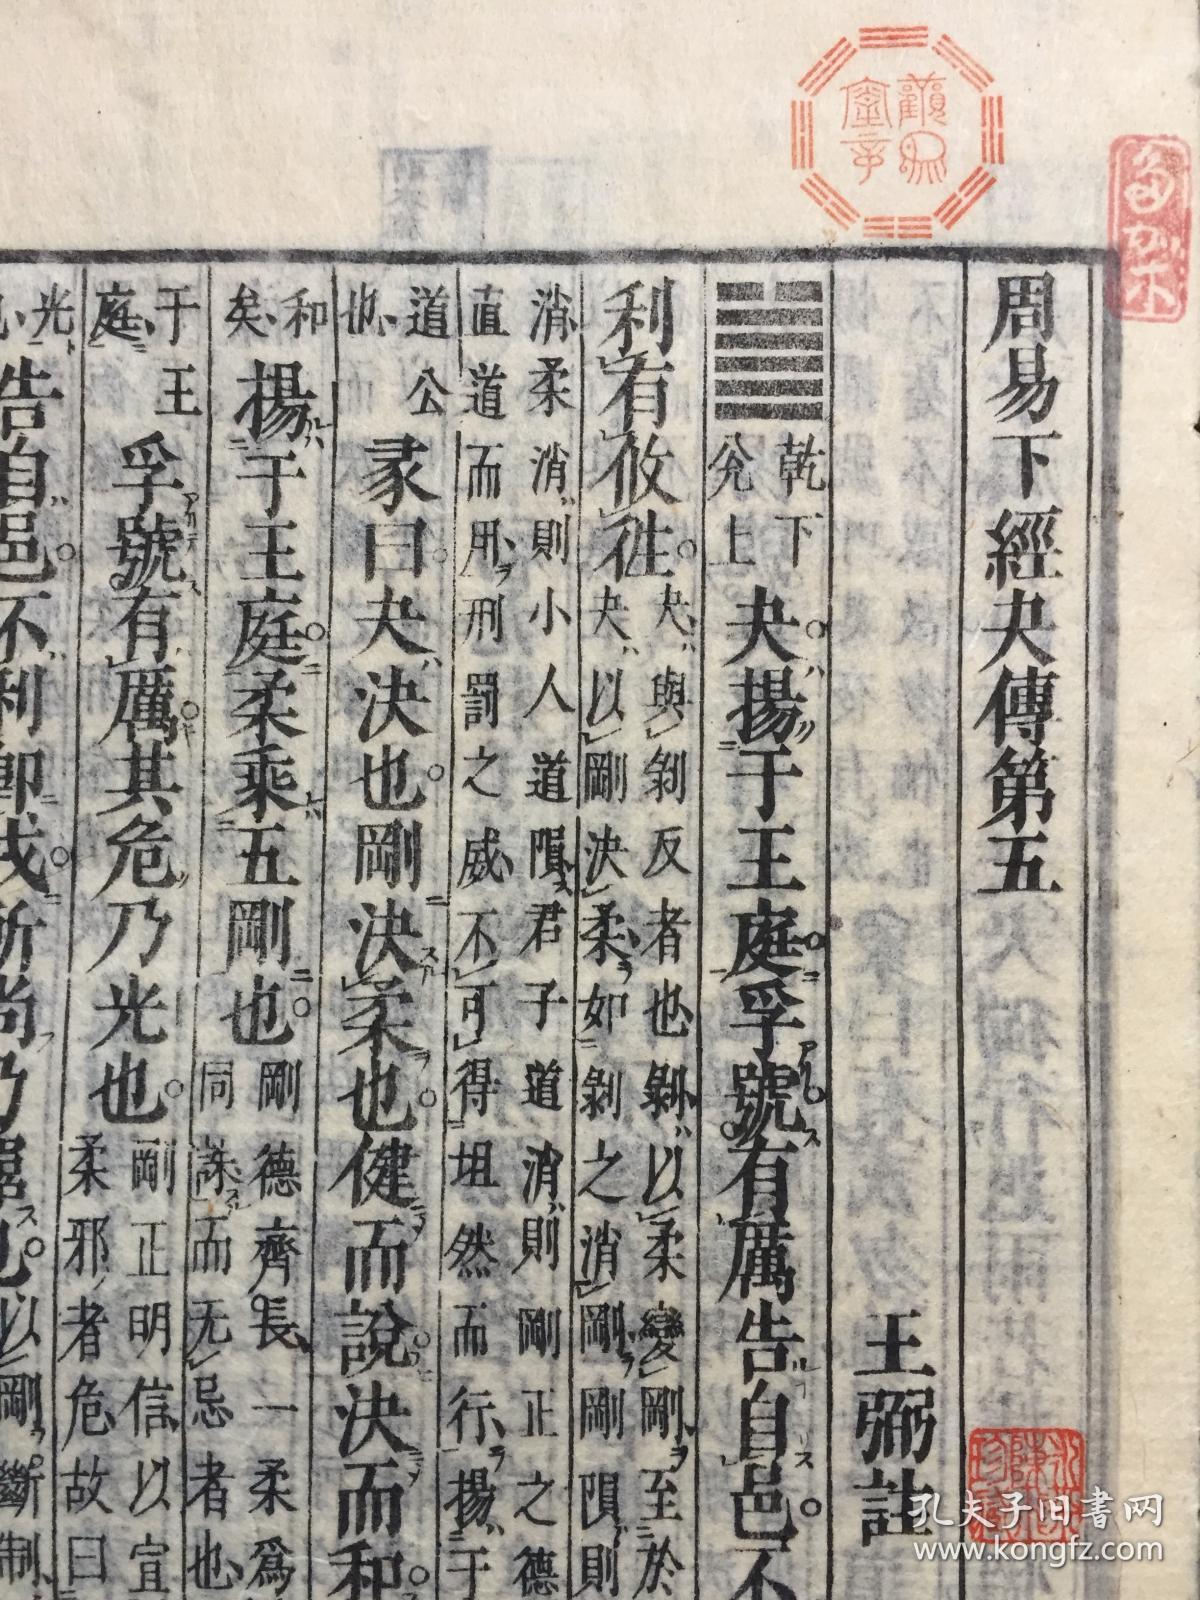 周易下經夬傳第五
王弼註
乾下兌上夬揚于王庭孚號有厲告自邑不
利有攸往夬與剝反者也剝以柔變剛至於
夬以剛決柔如剝之消剛剛隕則
消柔消則小人道隕君子道消則剛正之德
直道而用刑罰之威不可得坦然而行揚于
道公也
彖曰夬決也剛決柔也健而說決而和
和矣
揚于王庭柔乘五剛也剛德齊長一柔爲
同誅而无忌者也
于王庭
孚號有厲其危乃光也剛正明信以宣
柔邪者危故曰
光
告自邑不利卽戎所尚乃窮也以剛斷制
孔夫子旧书网
www.kongfz.com